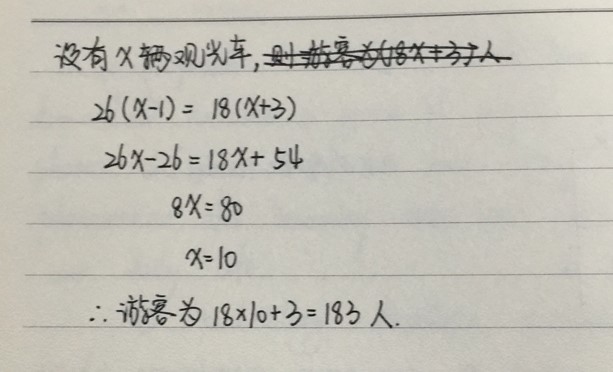 设有x辆观光车,则游客为(18x+3)人
26(x-1)= 18(x+3)
26x-26=18x+54
8x=80
x=10
∴游客为 18×10+3=183 人.